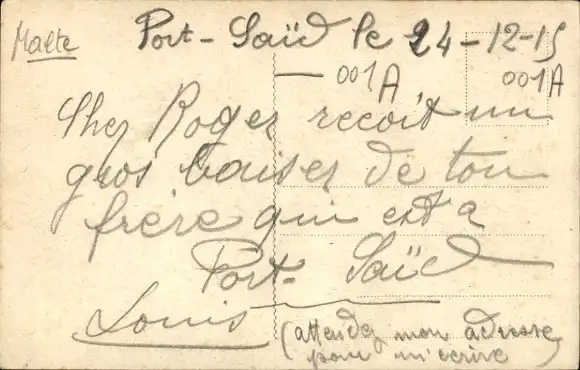 Malte
Port-Saïd le 24-12-15
001A
001A
Cher Roger reçoit un
gros baiser de ton
frère qui est a
Port-Saïd
Louis
(attendez mon adresse
pour m'écrire)